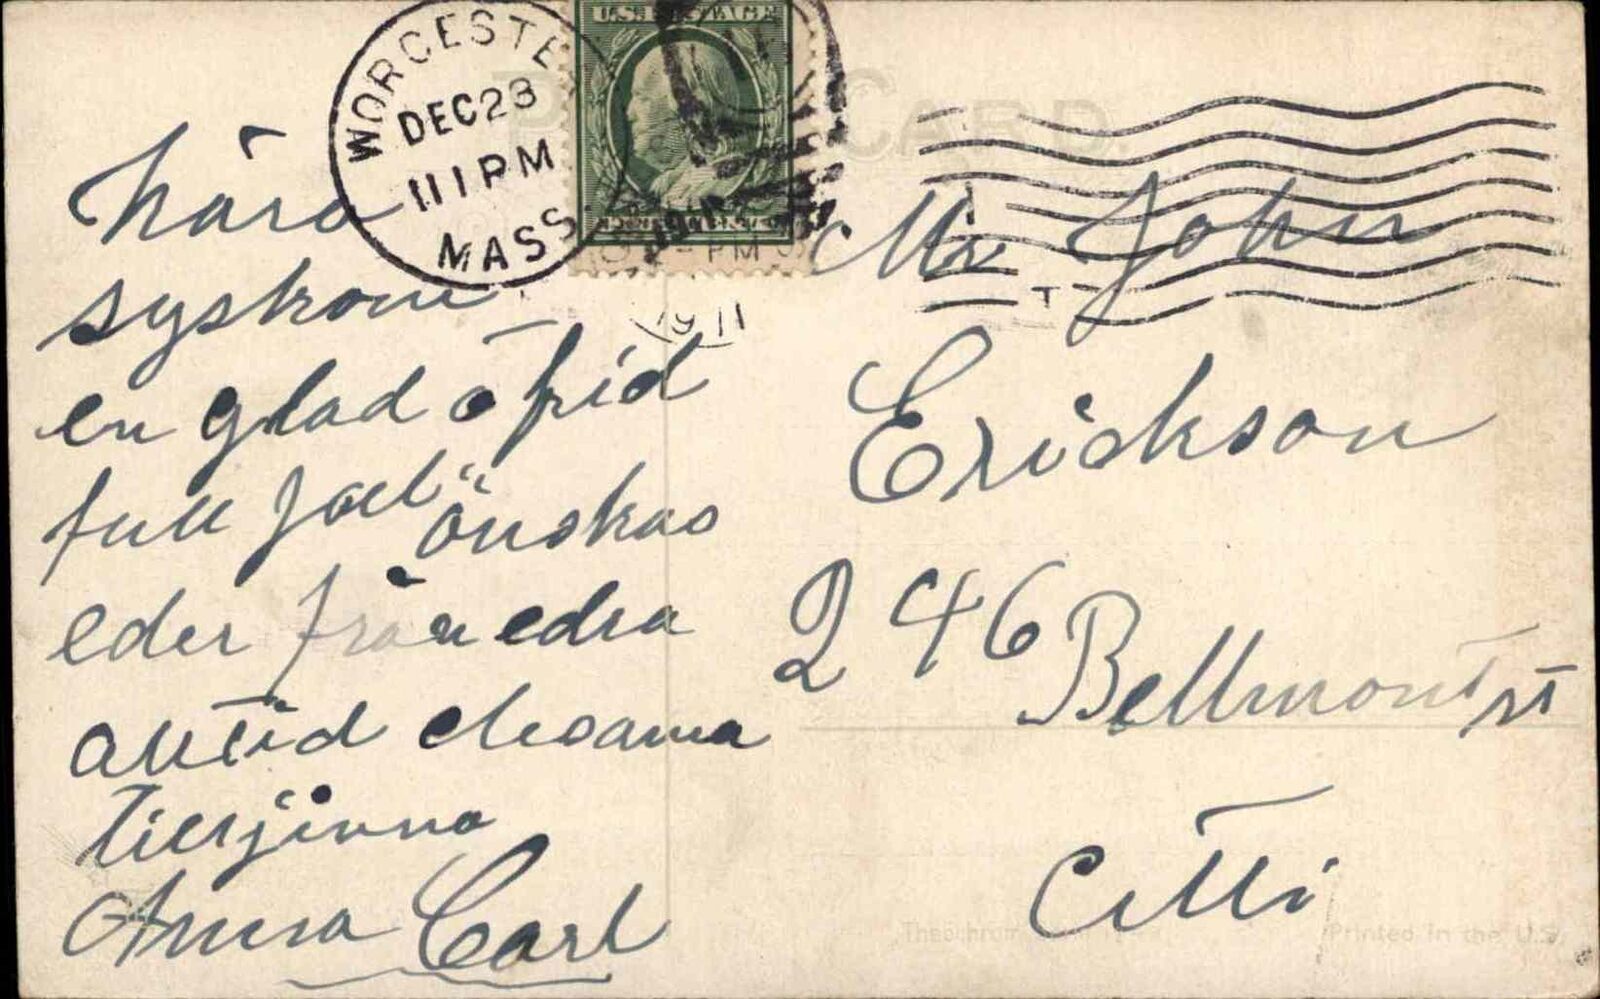 WORCESTER
DEC 23
11 1 PM
MASS
U.S. POSTAGE
POST CARD.
PM
1911
kära
syskon
en glad o frid
full Jul önskas
eder från edra
alltid
Anna Carl
Mr John
Erickson
246 Bellmont st
Citti
Theochrom
Printed in the U.S.